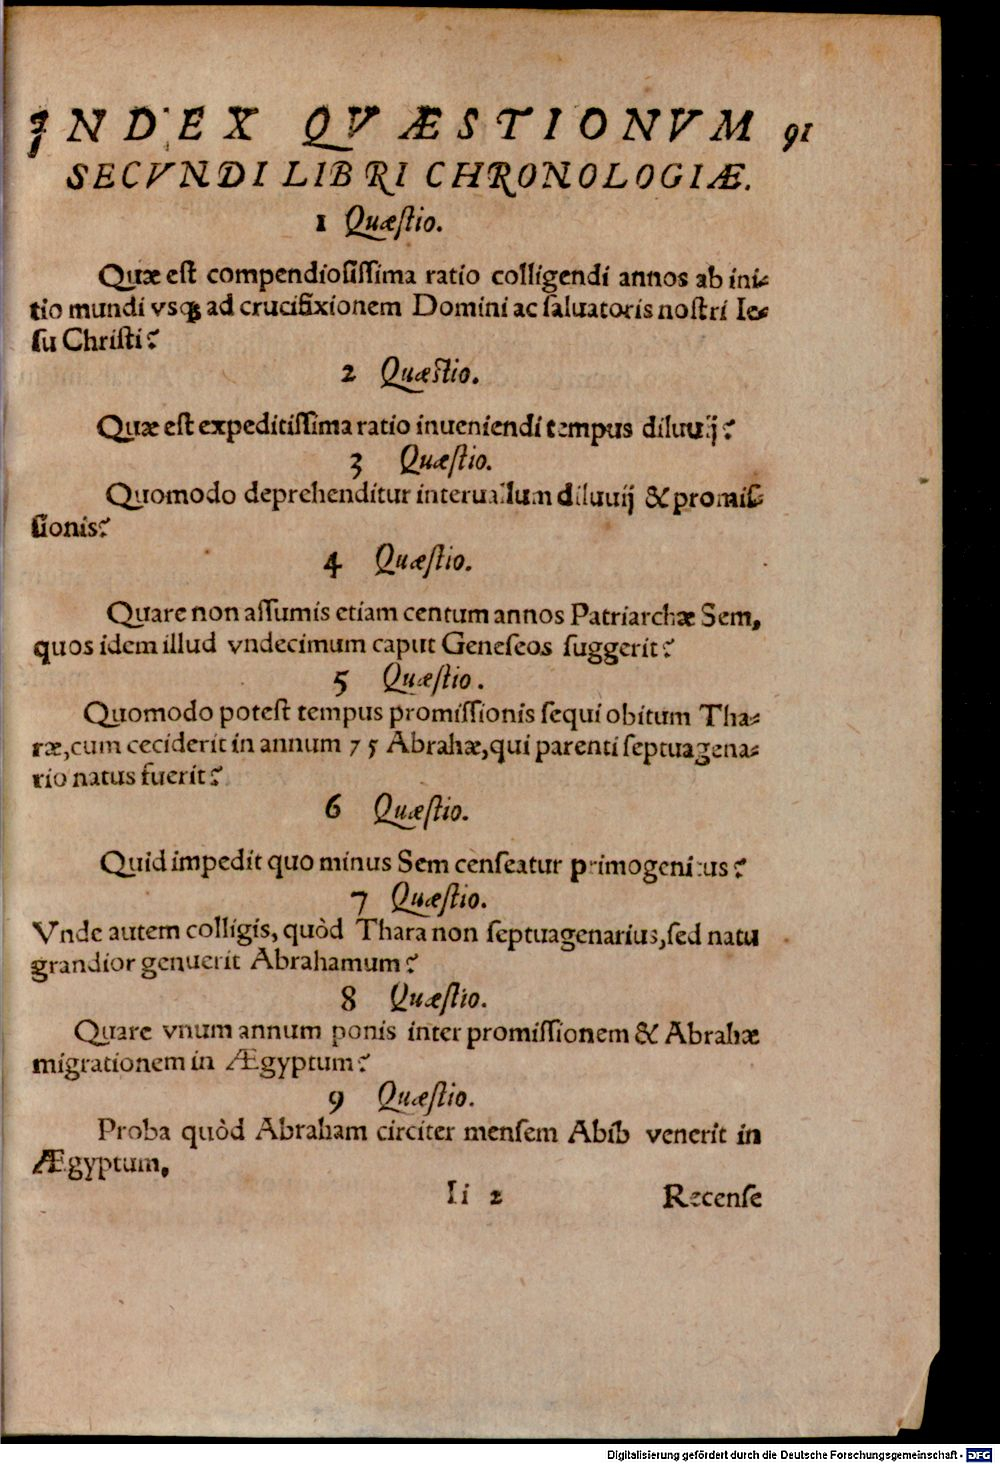 INDEX QVÆSTIONVM 91
SECVNDI LIBRI CHRONOLOGIÆ.
1 Quæſtio.
Quæ eſt compendioſiſſima ratio colligendi annos ab ini-
tio mundi vsq; ad crucifixionem Domini ac ſaluatoris noſtri Ie-
ſu Chriſti?
2 Quæſtio.
Quæ eſt expeditiſſima ratio inueniendi tempus diluuij?
3 Quæſtio.
Quomodo deprehenditur interuallum diluuij & promiſ-
ſionis?
4 Quæſtio.
Quare non aſſumis etiam centum annos Patriarchæ Sem,
quos idem illud vndecimum caput Geneſeos ſuggerit?
5 Quæſtio.
Quomodo poteſt tempus promiſſionis ſequi obitum Tha-
ræ, cum ceciderit in annum 75 Abrahæ, qui parenti ſeptuagena-
rio natus fuerit?
6 Quæſtio.
Quid impedit quo minus Sem cenſeatur primogenitus?
7 Quæſtio.
Vnde autem colligis, quòd Thara non ſeptuagenarius, ſed natu
grandior genuerit Abrahamum?
8 Quæſtio.
Quare vnum annum ponis inter promiſſionem & Abrahæ
migrationem in Ægyptum?
9 Quæſtio.
Proba quòd Abraham circiter menſem Abib venerit in
Ægyptum,
Ii 2 Recenſe
Digitalisierung gefördert durch die Deutsche Forschungsgemeinschaft - DFG